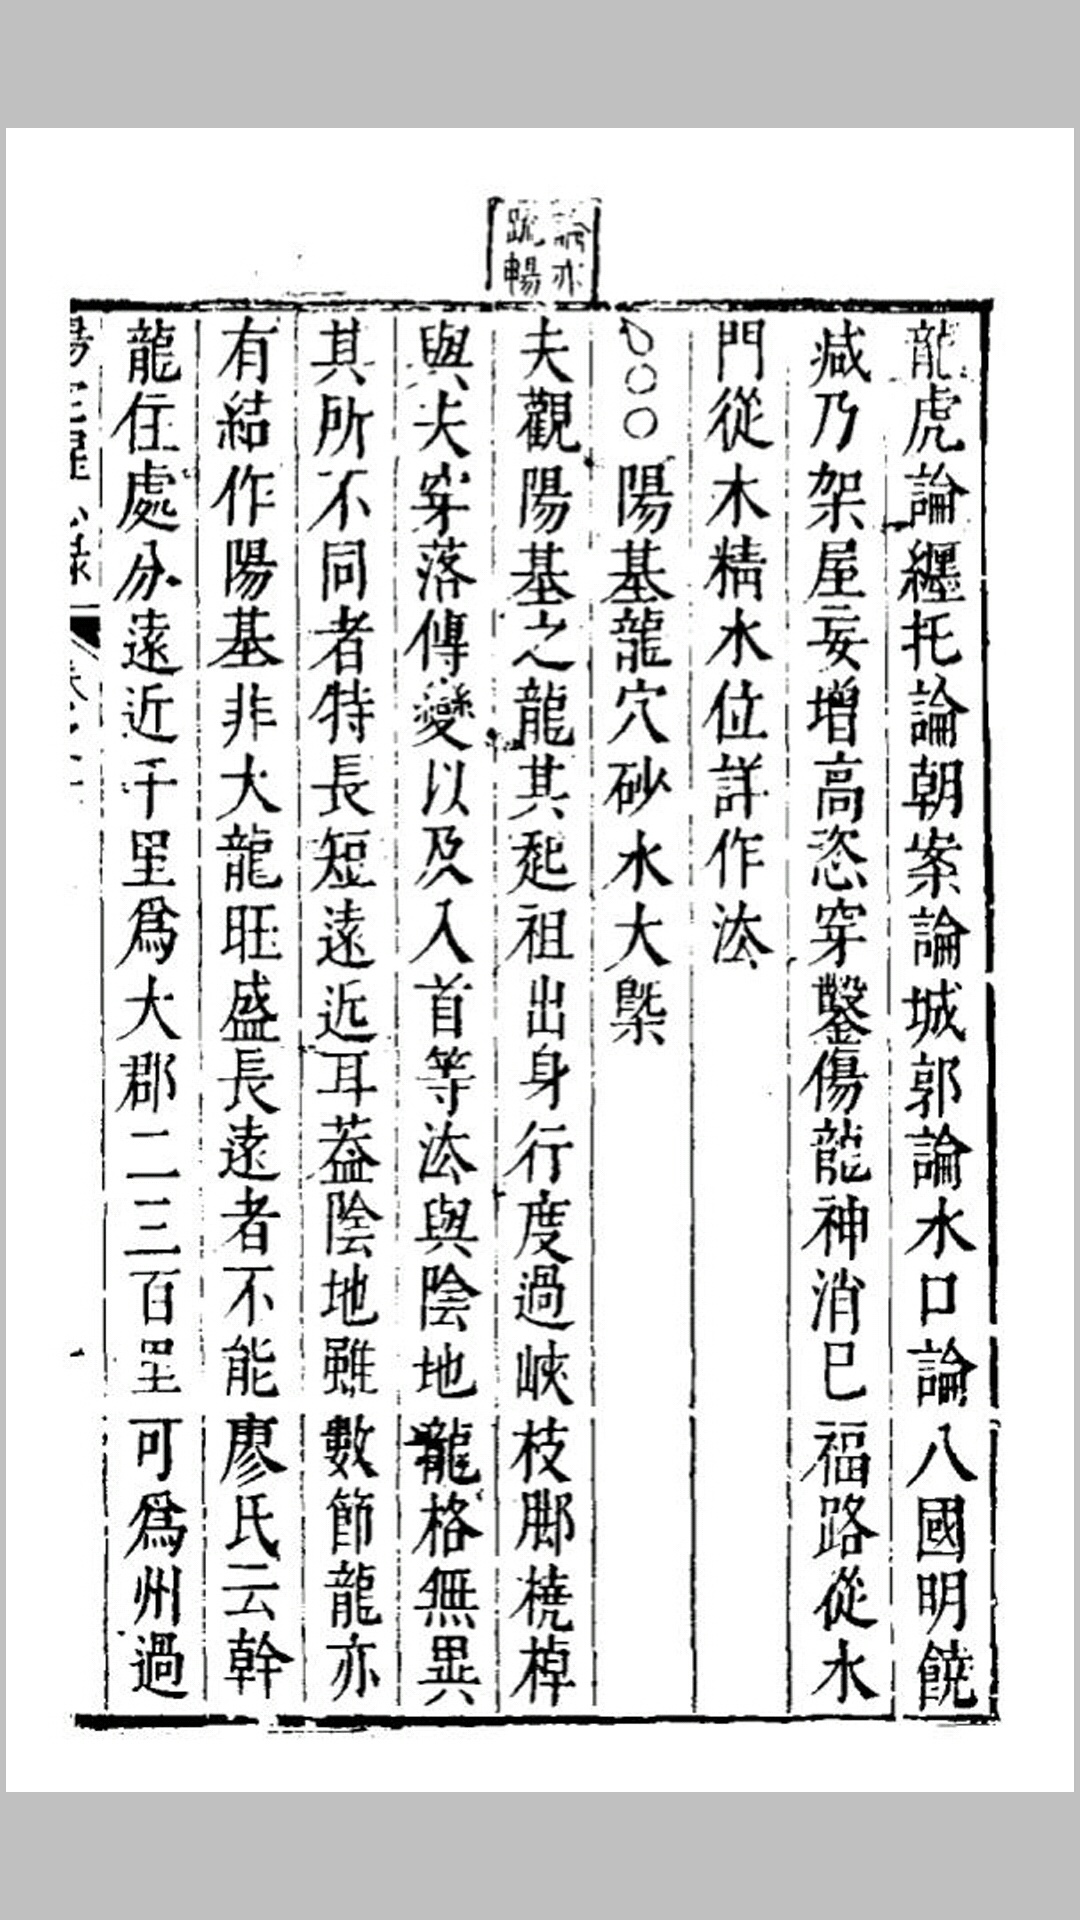 論亦
疏暢
龍虎論纒托論朝案論城郭論水口論八國明饒
减乃架屋妄增高恣穿鑿傷龍神消巳福路從水
門從木精水位詳作法
○○○陽基龍穴砂水大槩
夫觀陽基之龍其起祖出身行度過峽枝脚橈棹
與夫穿落傳變以及入首等法與陰地龍格無異
其所不同者特長短遠近耳葢陰地雖數節龍亦
有結作陽基非大龍旺盛長遠者不能廖氏云幹
龍住處分遠近千里爲大郡二三百里可爲州過